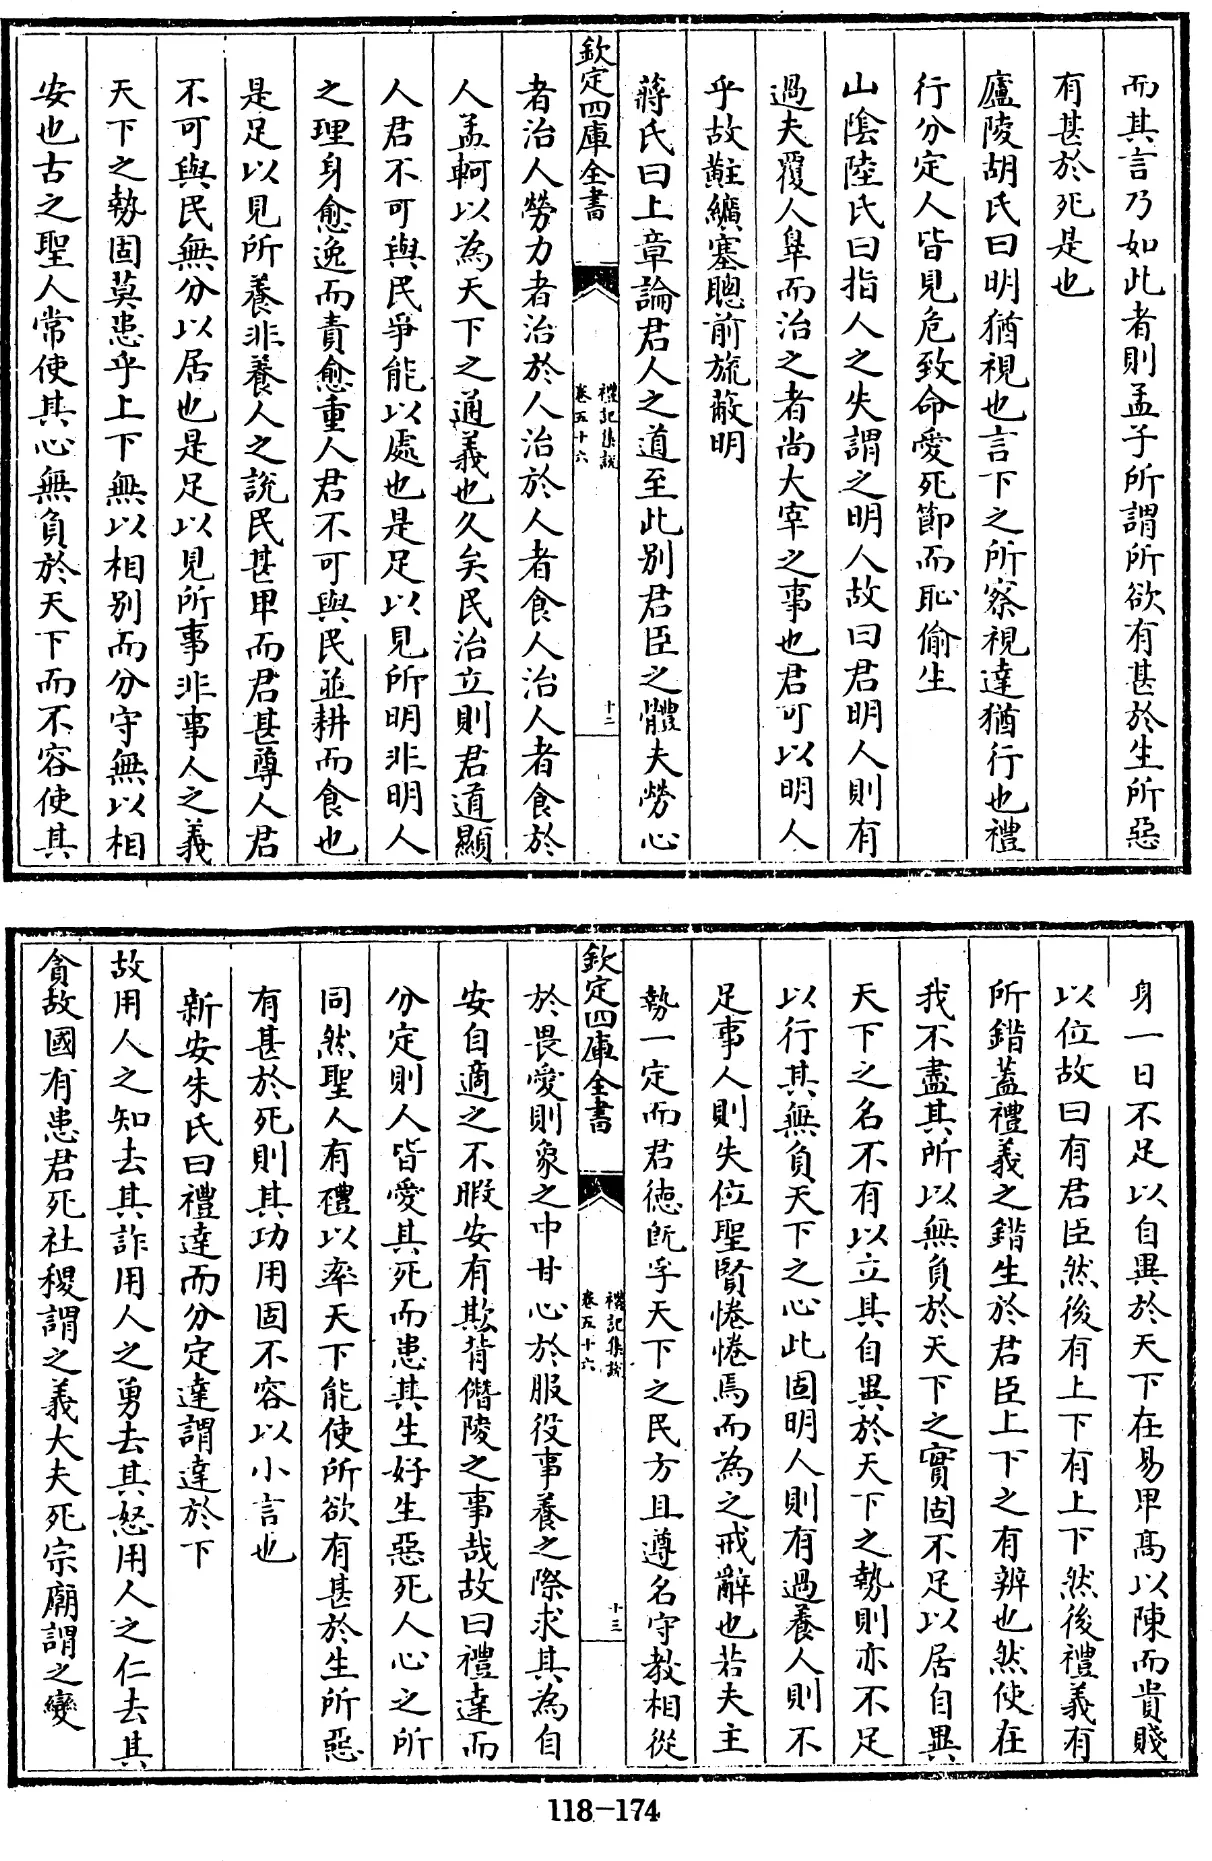 而其言乃如此者則孟子所謂所欲有甚於生所惡
有甚於死是也
廬陵胡氏曰明猶視也言下之所察視達猶行也禮
行分定人皆見危致命愛死節而恥偷生
山陰陸氏曰指人之失謂之明人故曰君明人則有
過夫覆人辠而治之者尚大宰之事也君可以明人
乎故黈纊塞聰前旒蔽明
蔣氏曰上章論君人之道至此别君臣之體夫勞心
欽定四庫全書
禮記集說
卷五十六
十二
者治人勞力者治於人治於人者食人治人者食於
人孟軻以為天下之通義也久矣民治立則君道顯
人君不可與民爭能以處也是足以見所明非明人
之理身愈逸而責愈重人君不可與民並耕而食也
是足以見所養非養人之說民甚卑而君甚尊人君
不可與民無分以居也是足以見所事非事人之義
天下之勢固莫患乎上下無以相别而分守無以相
安也古之聖人常使其心無負於天下而不容使其
身一日不足以自異於天下在易卑髙以陳而貴賤
以位故曰有君臣然後有上下有上下然後禮義有
所錯蓋禮義之錯生於君臣上下之有辨也然使在
我不盡其所以無負於天下之實固不足以居自異
天下之名不有以立其自異於天下之勢則亦不足
以行其無負天下之心此固明人則有過養人則不
足事人則失位聖賢惓惓焉而為之戒辭也若夫主
勢一定而君德既孚天下之民方且遵名守教相從
欽定四庫全書
禮記集說
卷五十六
十三
於畏愛則象之中甘心於服役事養之際求其為自
安自適之不暇安有欺背僭陵之事哉故曰禮達而
分定則人皆愛其死而患其生好生惡死人心之所
同然聖人有禮以率天下能使所欲有甚於生所惡
有甚於死則其功用固不容以小言也
新安朱氏曰禮達而分定達謂達於下
故用人之知去其詐用人之勇去其怒用人之仁去其
貪故國有患君死社稷謂之義大夫死宗廟謂之變
118-174